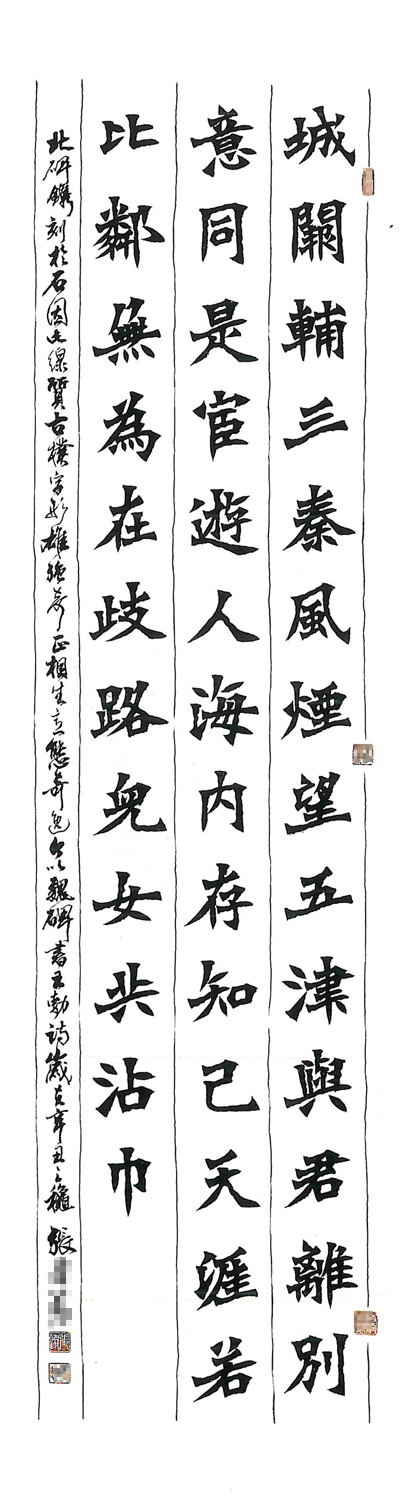 城闕輔三秦風煙望五津與君離別
意同是宦遊人海内存知己天涯若
比鄰無為在歧路兒女共沾巾
北碑鐫刻於石因之線質古樸字形雄強奇正相生意態奇逸今以魏碑書王勃詩歲在辛丑之穐 張